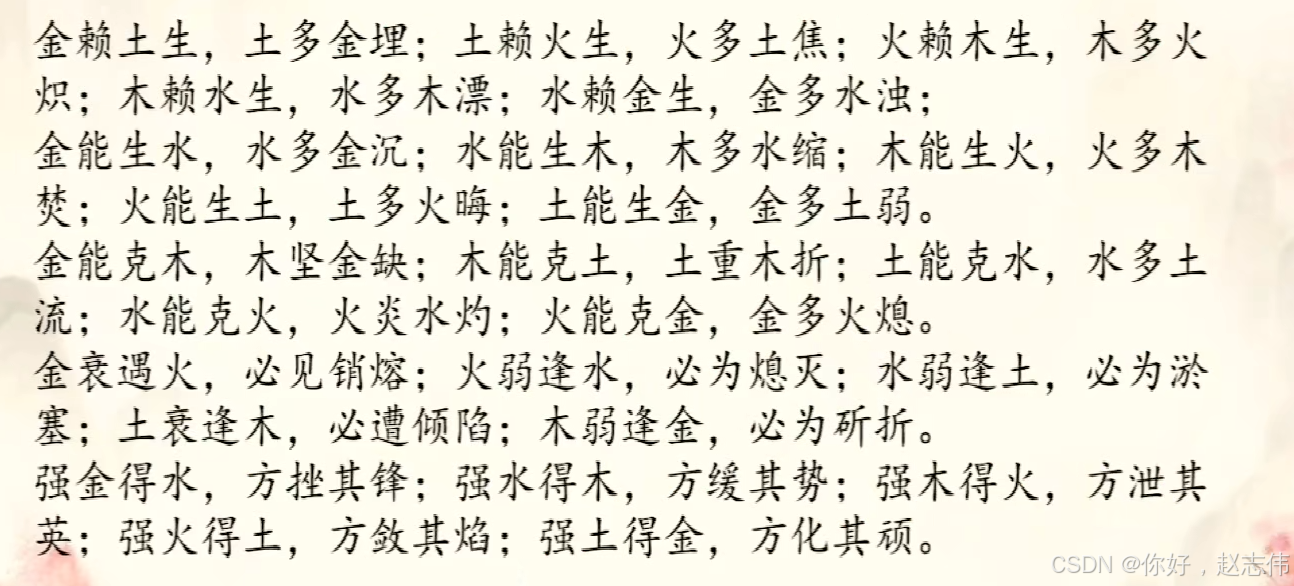 金赖土生，土多金埋；土赖火生，火多土焦；火赖木生，木多火
炽；木赖水生，水多木漂；水赖金生，金多水浊；
金能生水，水多金沉；水能生木，木多水缩；木能生火，火多木
焚；火能生土，土多火晦；土能生金，金多土弱。
金能克木，木坚金缺；木能克土，土重木折；土能克水，水多土
流；水能克火，火炎水灼；火能克金，金多火熄。
金衰遇火，必见销熔；火弱逢水，必为熄灭；水弱逢土，必为淤
塞；土衰逢木，必遭倾陷；木弱逢金，必为斫折。
强金得水，方挫其锋；强水得木，方缓其势；强木得火，方泄其
英；强火得土，方敛其焰；强土得金，方化其顽。
CSDN @你好，赵志伟